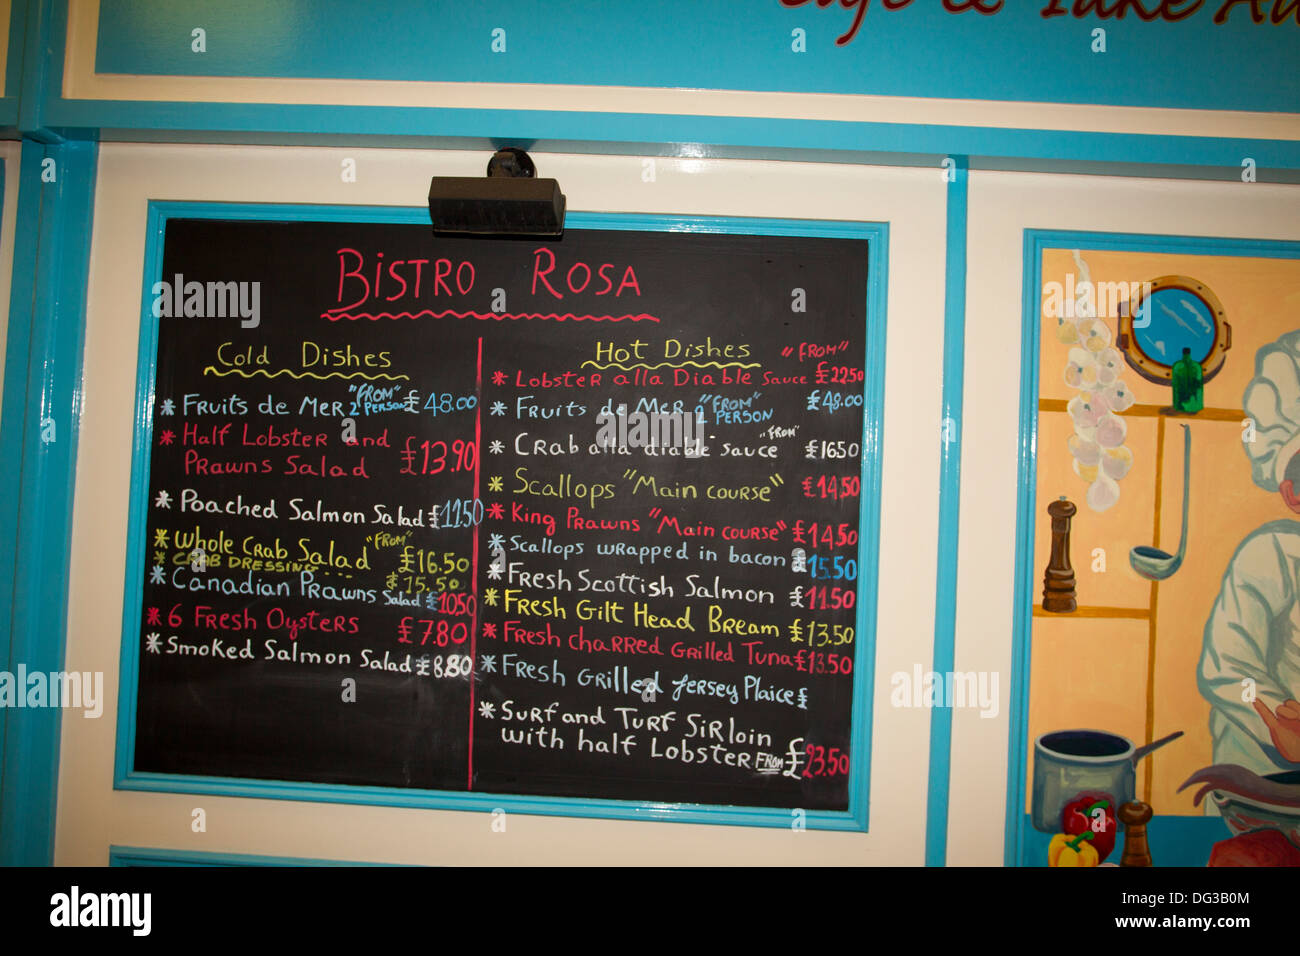 Cafe & Take
BISTRO ROSA
Cold Dishes
* FRUITS de MER "FROM" 2 PERSON £48.00
* Half LOBSTER and
PRAWNS SALAD £13.90
* Poached Salmon Salad £11.50
* Whole CRAB Salad "FROM" £16.50
* CRAB DRESSING.... £15.50
* Canadian PRAWNS Salad £10.50
* 6 FRESH OYSTERS £7.80
* Smoked Salmon Salad £8.80
Hot Dishes
"FROM"
* LOBSTER alla Diable sauce £22.50
* FRUITS de MER "FROM" 2 PERSON £48.00
* CRAB alla diable sauce "FROM" £16.50
* Scallops "Main course" £14.50
* King PRAWNS "Main course" £14.50
* Scallops wrapped in bacon £15.50
* Fresh Scottish Salmon £11.50
* Fresh Gilt Head Bream £13.50
* Fresh charred Grilled Tuna £13.50
* Fresh Grilled Jersey Plaice £
* Surf and Turf Sirloin
with half Lobster FROM £23.50
alamy stock photo
Image ID: DG3B0M
www.alamy.com